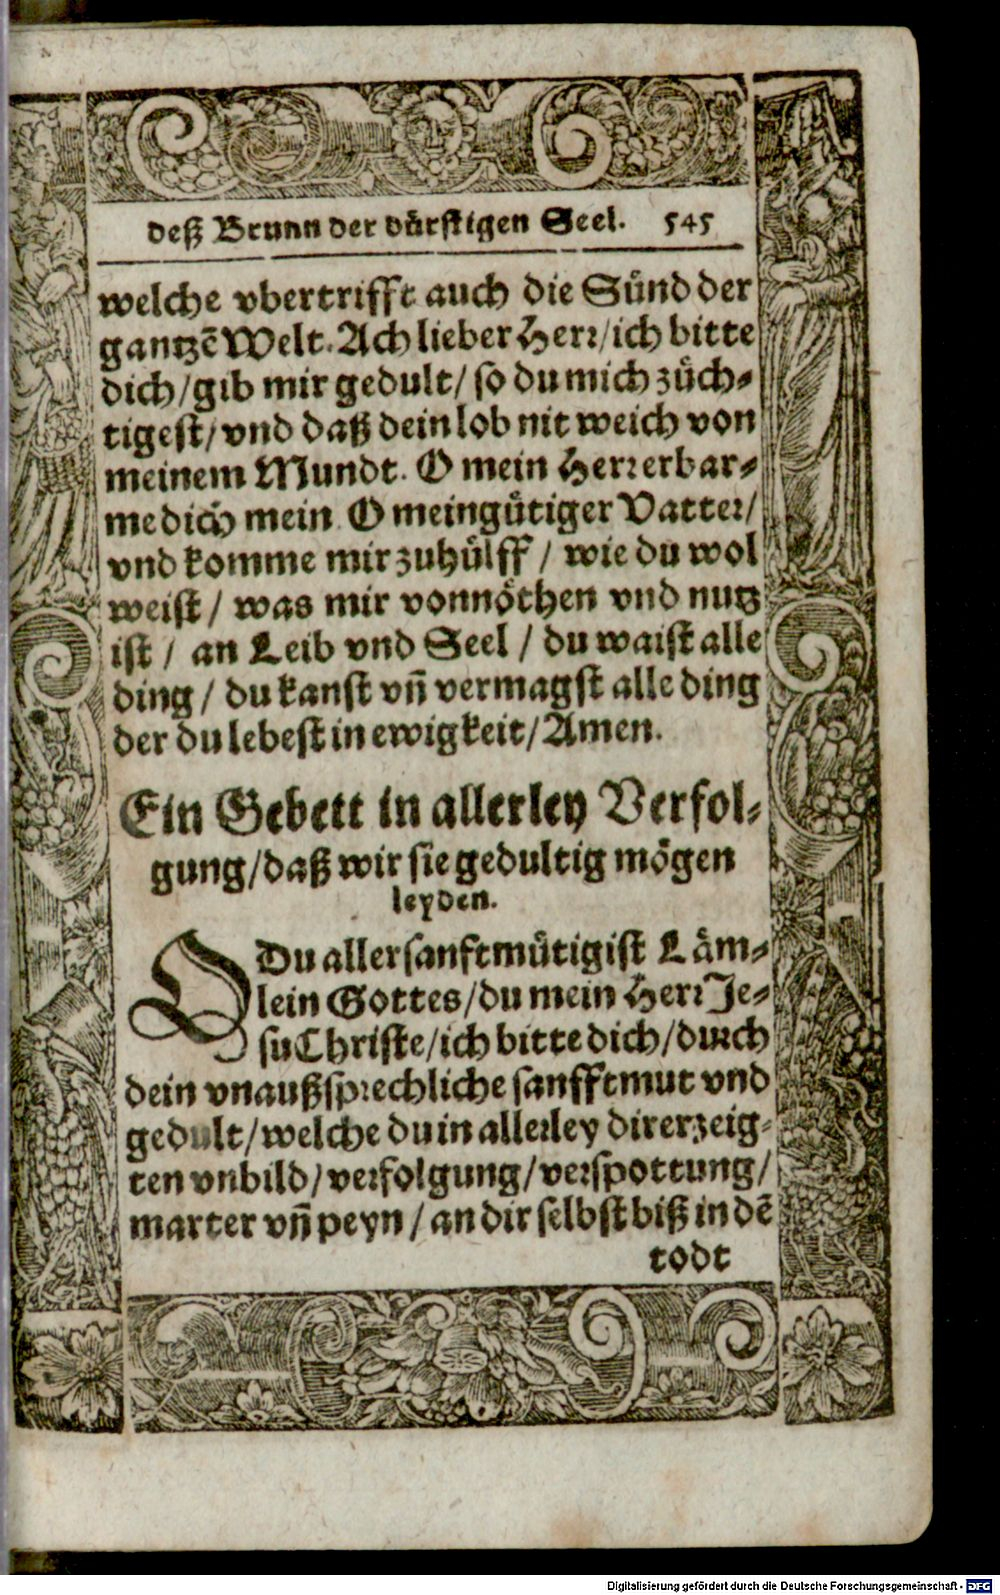 deß Brunn der dürstigen Seel. 545
welche vbertrifft auch die Sünd der
gantzē Welt. Ach lieber Herr/ich bitte
dich/gib mir gedult/ so du mich züch-
tigest/vnd daß dein lob nit weich von
meinem Mundt. O mein Herr erbar-
me dich mein O mein gütiger Vatter/
vnd komme mir zu hülff / wie du wol
weist / was mir vonnöthen vnd nutz
ist / an Leib vnd Seel / du waist alle
ding / du kanst vn̄ vermagst alle ding
der du lebest in ewigkeit/Amen.
Ein Gebett in allerley Verfol-
gung/daß wir sie gedultig mögen
leyden.
O Du allersanftmütigist Läm-
lein Gottes/du mein Herr Je-
su Christe/ich bitte dich/durch
dein vnaußsprechliche sanfftmut vnd
gedult/welche du in allerley dir erzeig-
ten vnbild/verfolgung/verspottung/
marter vn̄ peyn / an dir selbst biß in dē
todt
Digitalisierung gefördert durch die Deutsche Forschungsgemeinschaft - DFG